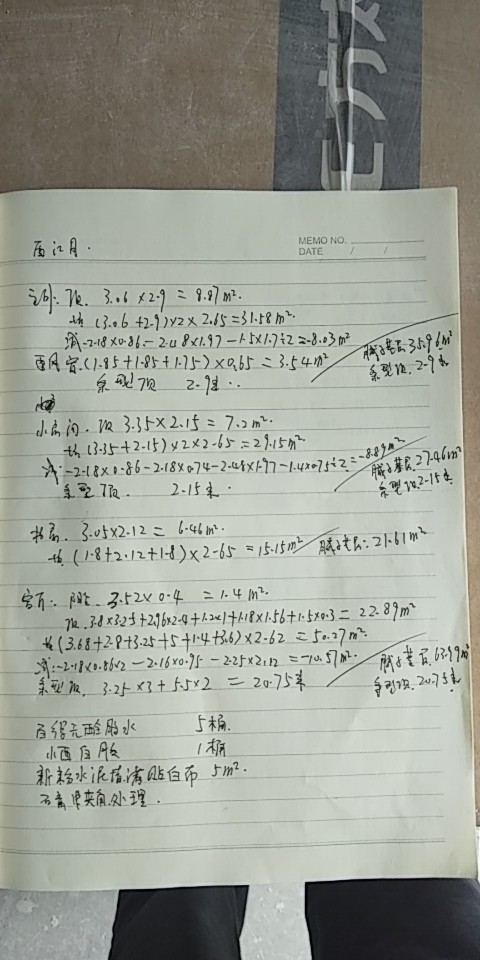 西江月.
MEMO NO.
DATE / /
主卧: 顶. 3.06×2.9 = 8.87m².
墙 (3.06+2.9)×2×2.65=31.58m².
减-2.18×0.86-2.18×1.97-1.5×1.7÷2=-8.03m²
(1.85+1.85+1.75)×0.65=3.54m²
腻子基层:35.96m²
造型顶 2.9米..
造型顶.2.9米
小房间. 顶 3.35×2.15=7.2m².
墙 (3.35+2.15)×2×2.65=29.15m².
减:-2.18×0.86-2.18×0.74-2.48×1.97-1.4×0.75÷2=-8.89m²
腻子基层:27.46m²
造型顶. 2.15米.
造型顶2.15米
3.05×2.12= 6.46m².
墙 (1.8+2.12+1.8)×2.65=15.15m²
腻子基层:21.61m²
客厅: 3.52×0.4 =1.4m².
顶.3.8×3.25+2.96×2.4+1.2×1+1.18×1.56+1.5×0.3=22.89m²
墙(3.68+2.8+3.25+5+1.4+3.6)×2.62=50.27m².
减:-2.18×0.86×2-2.16×0.95-2.25×2.12=-10.57m².
腻子基层.63.99m²
造型顶. 3.25×3+5.5×2 = 20.75米
造型顶.20.75米
胶水 5桶.
白胶 1桶
新粉水泥墙满贴白布 5m².
处理.